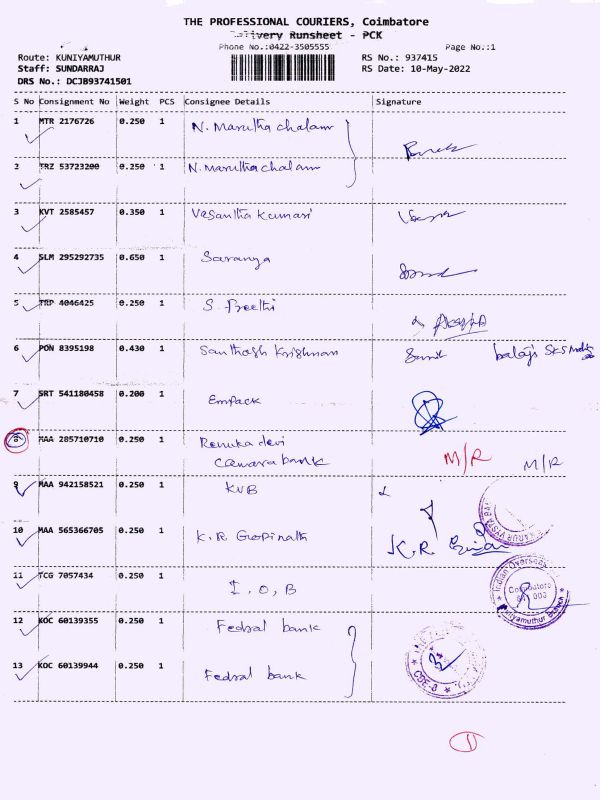 THE PROFESSIONAL COURIERS, Coimbatore
Delivery Runsheet - PCK
Phone No.:0422-3505555 Page No.:1
Route: KUNIYAMUTHUR RS No.: 937415
Staff: SUNDARRAJ RS Date: 10-May-2022
DRS No.: DCJB93741501
S No Consignment No Weight PCS Consignee Details Signature
1 MTR 2176726 0.250 1 N. Marutha chalam
2 TRZ 53723200 0.250 1 N. Marutha chalam
3 KVT 2585457 0.350 1 Vasantha Kumari
4 SLM 295292735 0.650 1 Saranya
5 TRP 4046425 0.250 1 S. Preethi
6 PON 8395198 0.430 1 Santhosh Krishnan balaji SKS
7 SRT 541180458 0.200 1 Empack
8 MAA 285710710 0.250 1 Renuka devi
Canara bank M/R M/R
9 MAA 942158521 0.250 1 KVB
KARUR VYSYA BA
10 MAA 565366705 0.250 1 K. R Gopinath K. R.
11 TCG 7057434 0.250 1 I. O. B
Indian Overseas
Coimbatore
Kuniyamuthur Branch
12 KOC 60139355 0.250 1 Fedral bank
13 KOC 60139944 0.250 1 Fedral bank
CBE-8
1